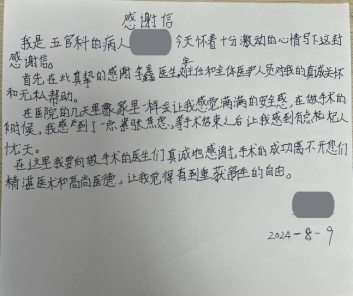 感谢信
我是五官科的病人 今天怀着十分激动的心情写下这封
感谢信。
首先在此真挚的感谢李鑫医生副主任和全体医护人员对我的真诚关怀
和无私帮助。
在医院的几天里像家里一样会让我感觉满满的安全感,在做手术的
时候,我感到了一点紧张焦虑,等手术结束之后让我感到有点杞人
忧天。
在这里我要向做手术的医生们真诚地感谢,手术的成功离不开您们
精湛医术和高尚医德,让我觉得有到重获新生的自由。
2024-8-9